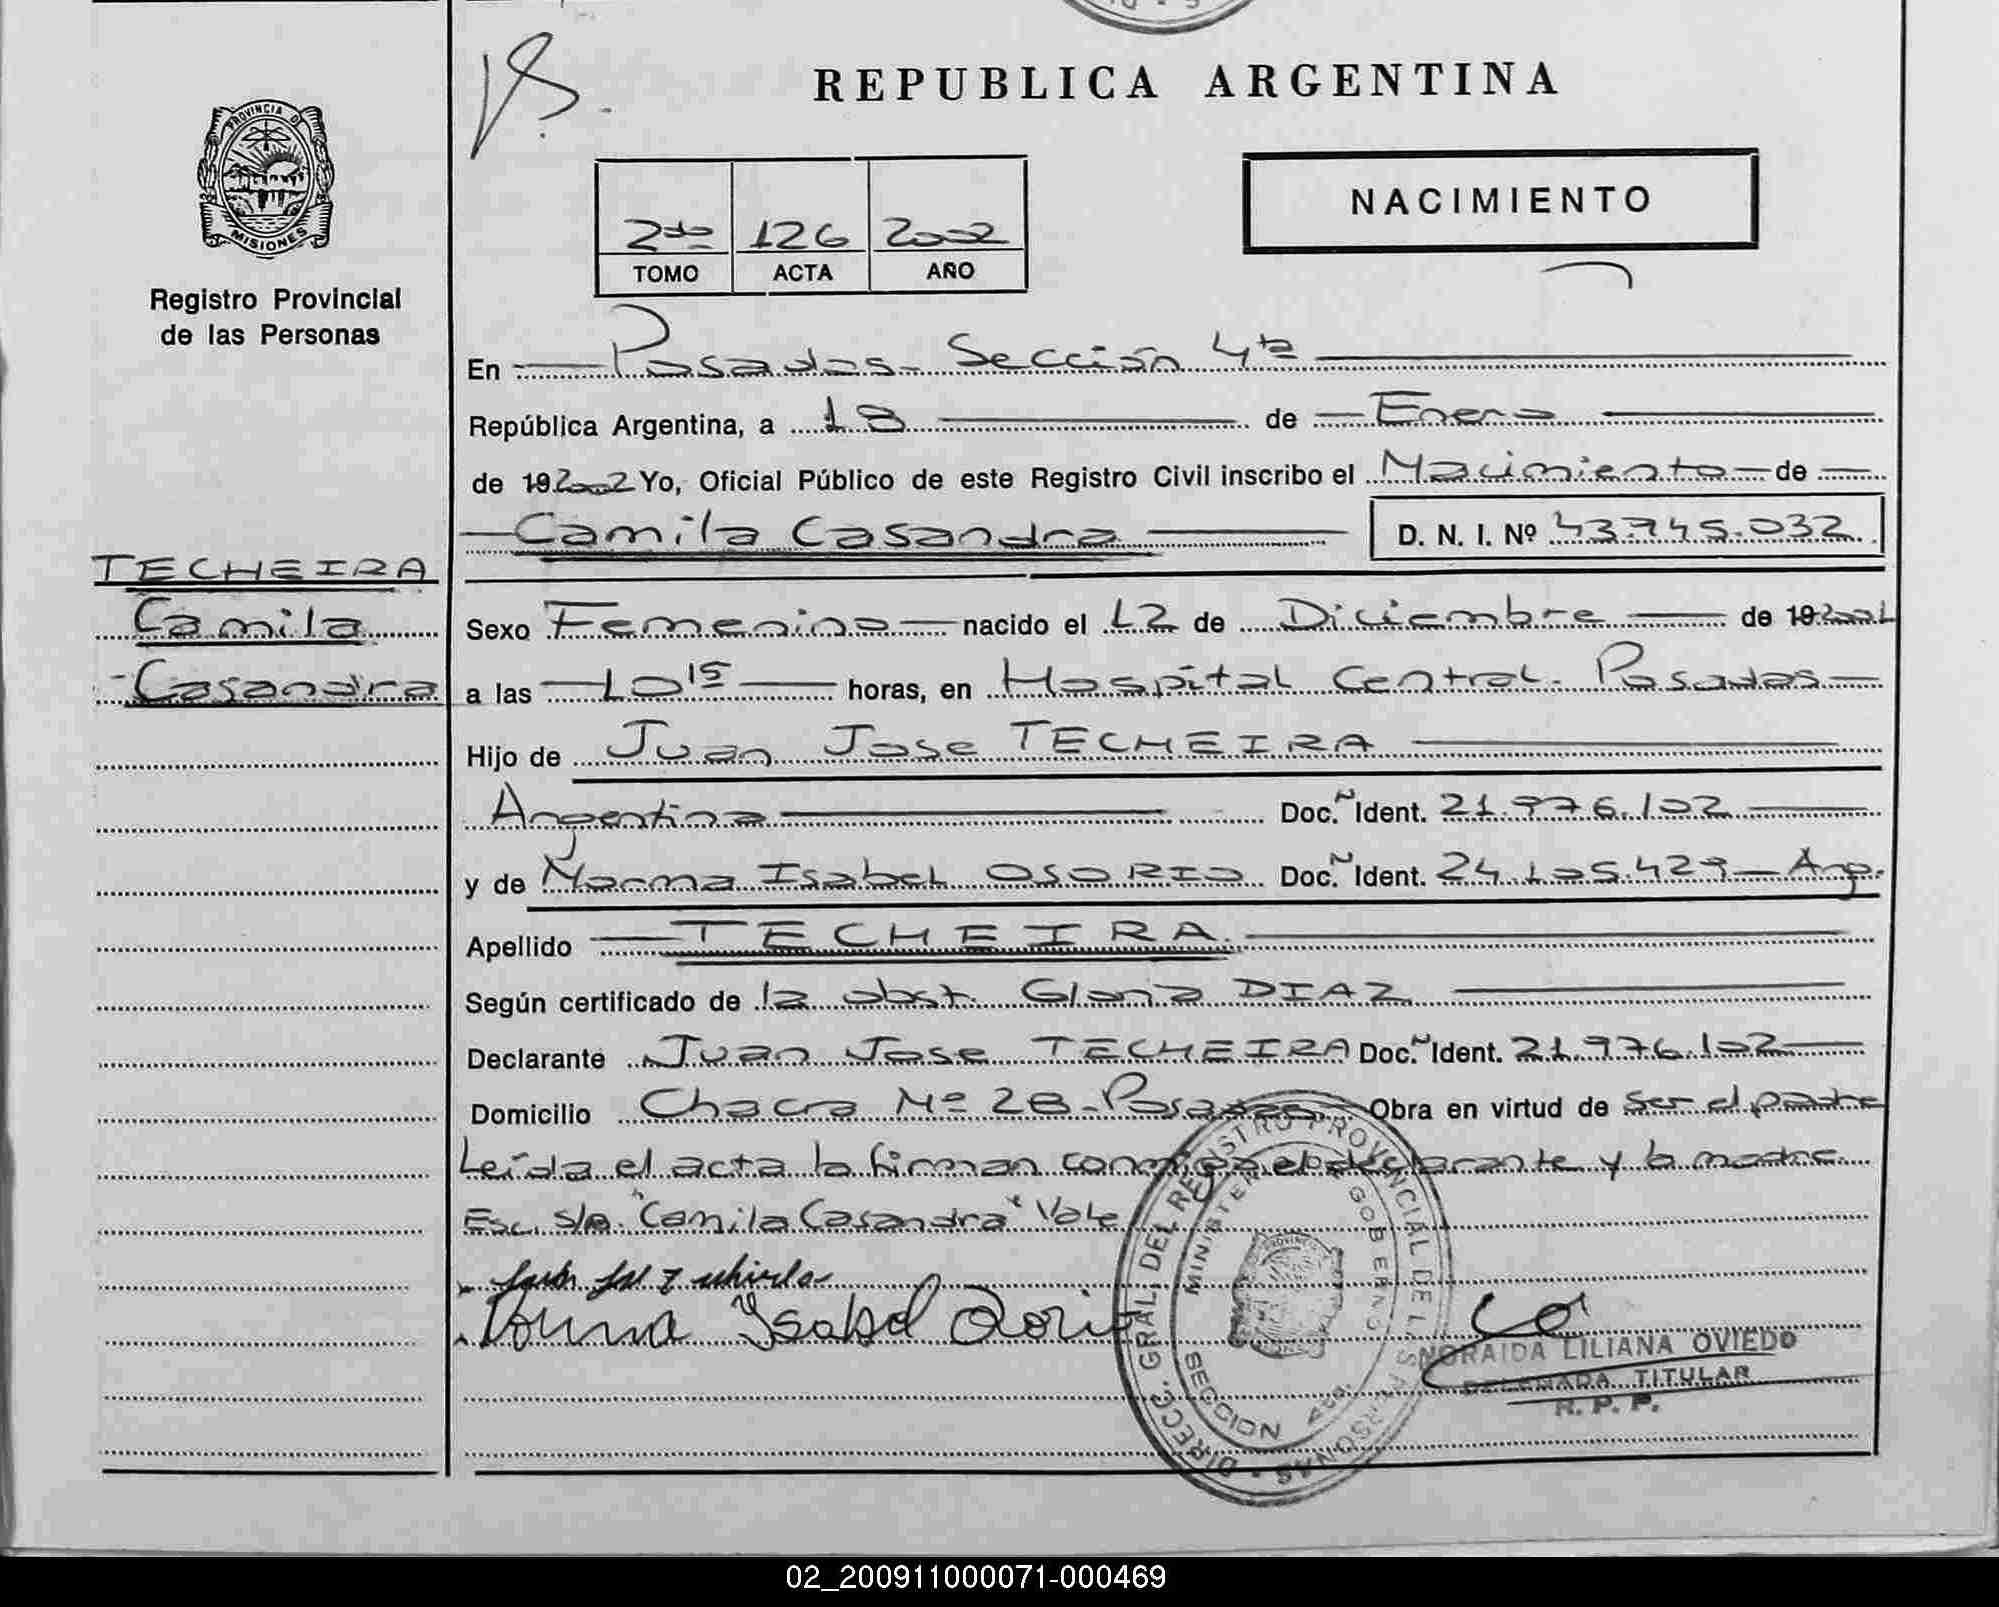 REPUBLICA ARGENTINA
PROVINCIA DE
MISIONES
Registro Provincial
de las Personas
2do 126 2002
TOMO ACTA AÑO
NACIMIENTO
En Posadas - Sección 4ta
República Argentina, a 18 de Enero
de 192002 Yo, Oficial Público de este Registro Civil inscribo el Nacimiento de
Camila Casandra D. N. I. Nº 43.745.032
TECHEIRA
Camila
Casandra
Sexo Femenino nacido el 12 de Diciembre de 192001
a las 10 15 horas, en Hospital Central - Posadas
Hijo de Juan Jose TECHEIRA
Argentina Doc. N Ident. 21.976.102
y de Norma Isabel OSORIO Doc. N Ident. 24.105.429 - Arg.
Apellido TECHEIRA
Según certificado de la obst. Gloria DIAZ
Declarante Juan Jose TECHEIRA Doc. N Ident. 21.976.102
Domicilio Chacra Nº 28 - Posadas Obra en virtud de ser el padre
Leída el acta la firman conmigo el declarante y la madre
Esc. s/r. "Camila Casandra" Vale
Norma Ysabel Osorio
DIRECC. GRAL. DEL REGISTRO PROVINCIAL DE LAS PERSONAS
MINISTERIO GOBIERNO
SECCION 4ta.
NORAIDA LILIANA OVIEDO
DELEGADA TITULAR
R. P. P.
02_200911000071-000469